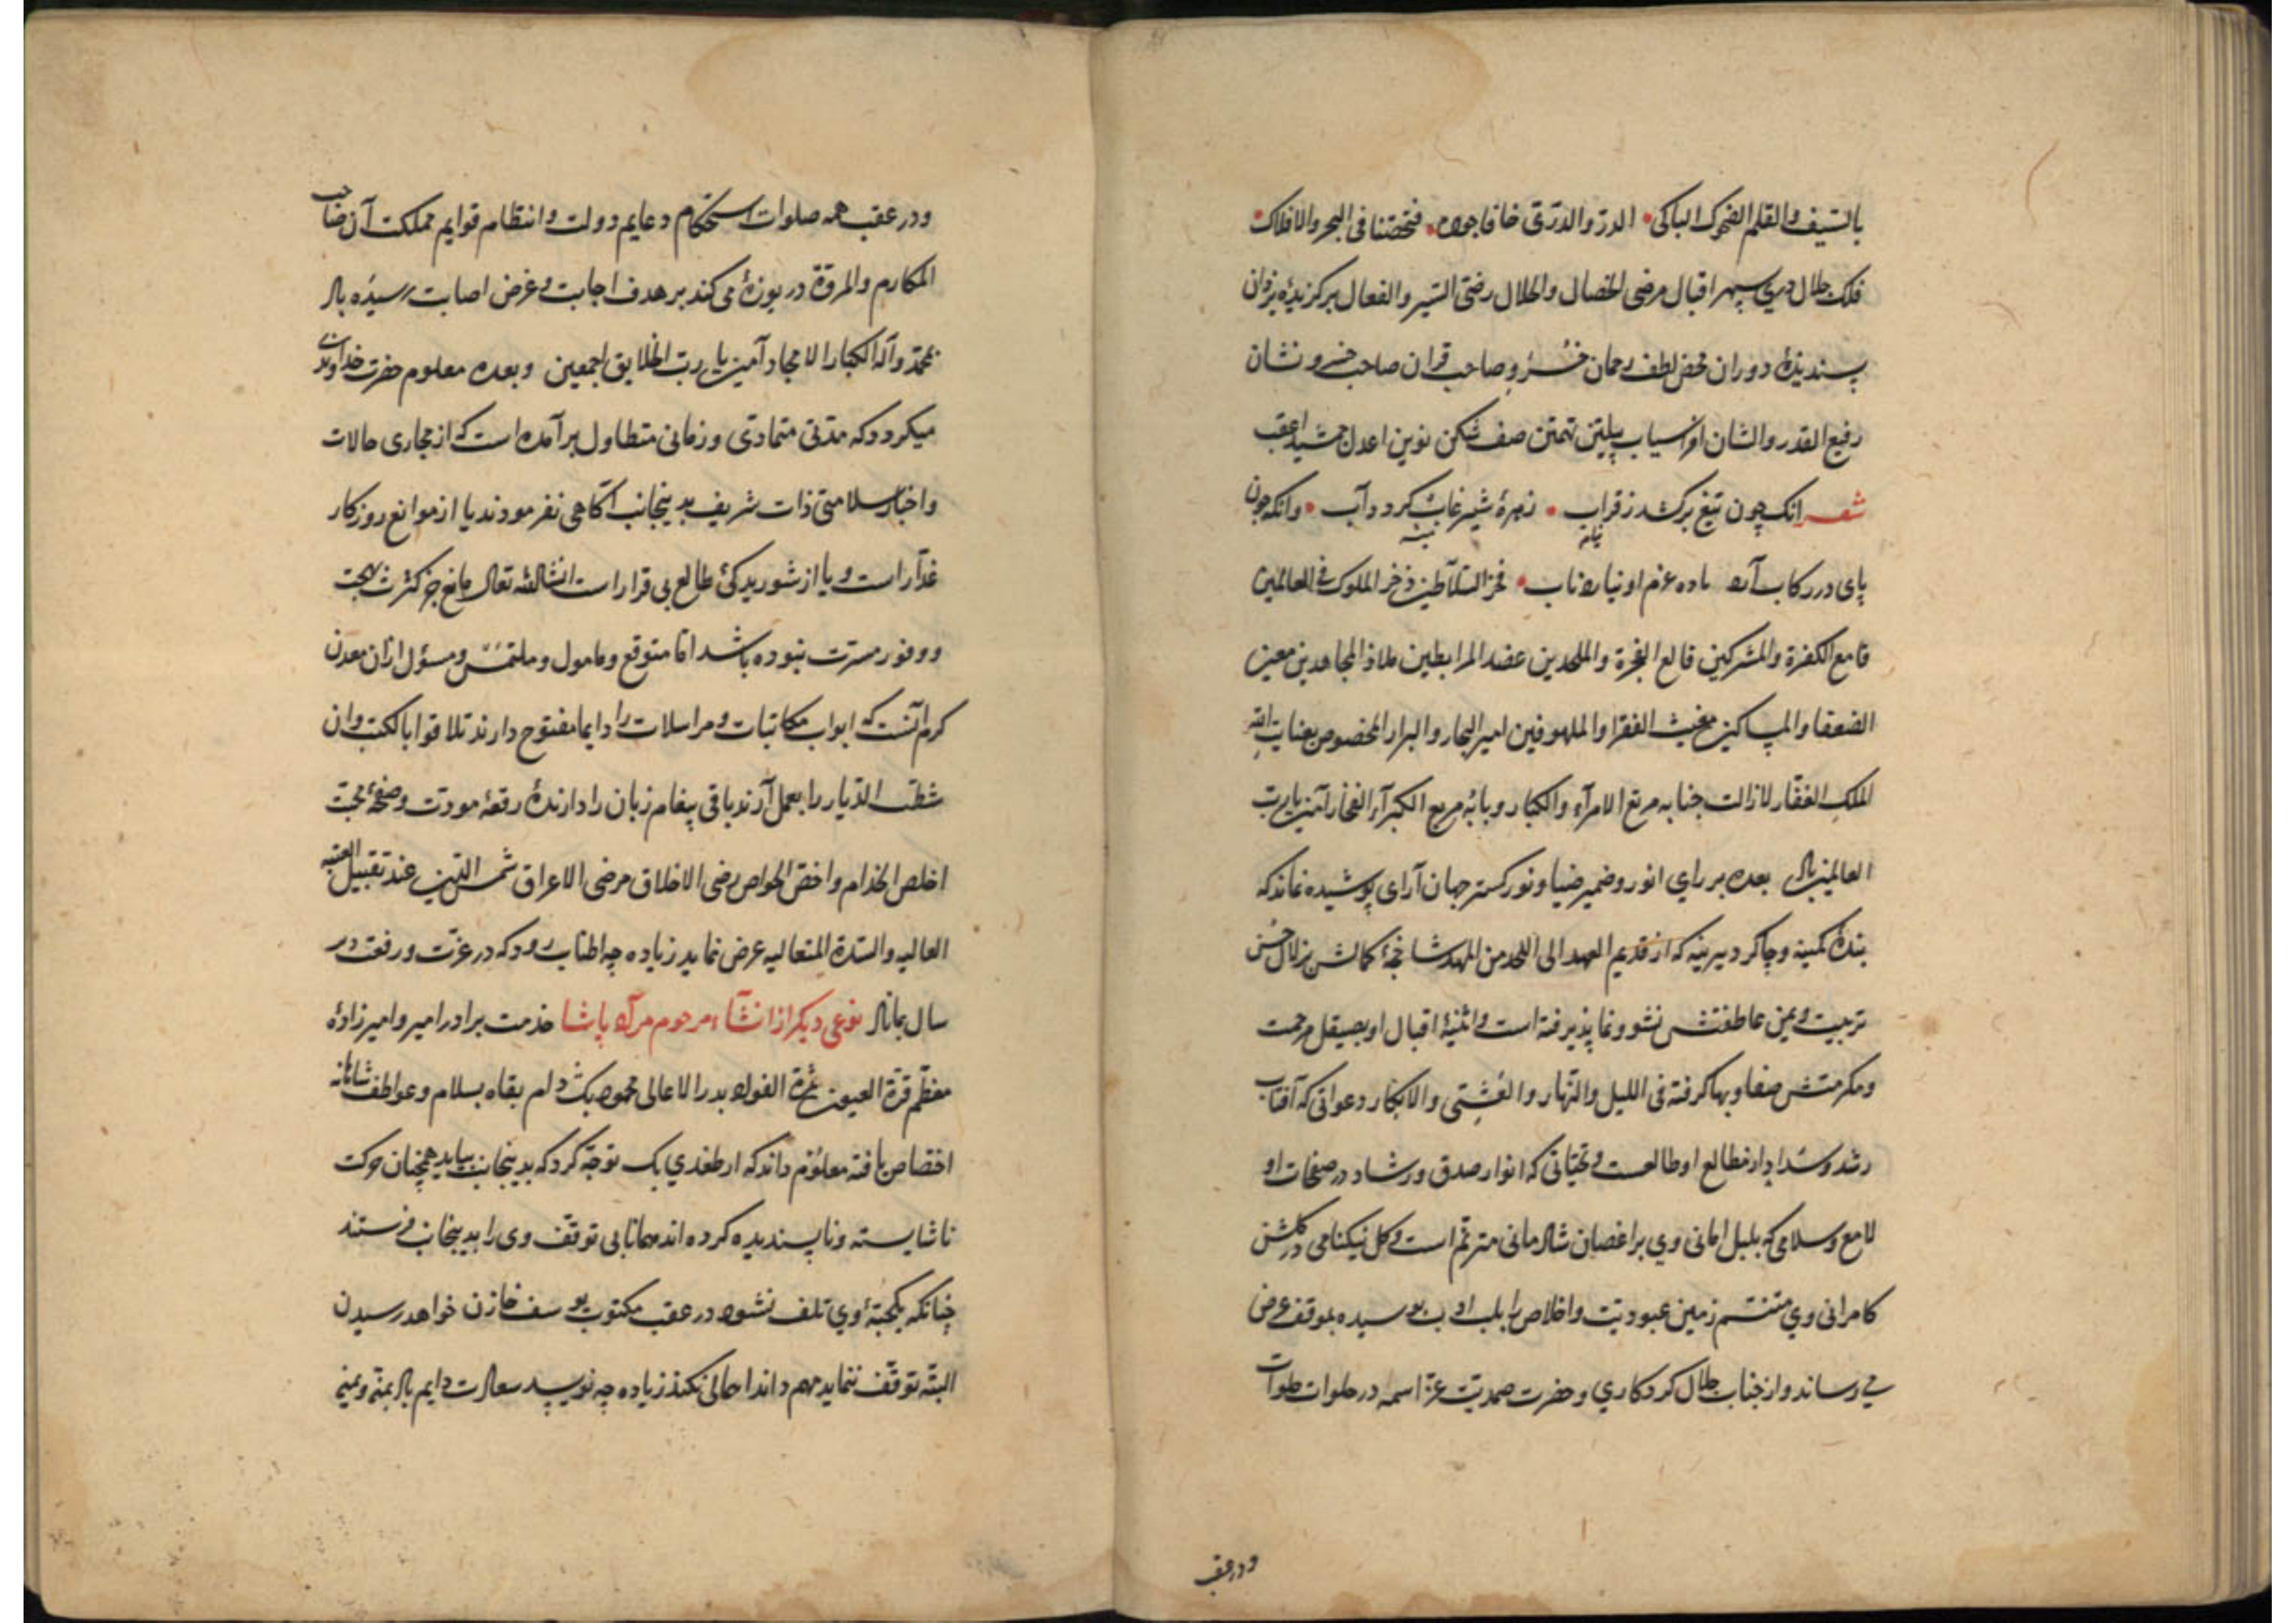 بالسیف والقلم الضحوک الباکی • الدرّ والدرّی خافا جوده • فتحصّنا فی البحر والافلاک •
فلک جلال دری سپهر اقبال مرضی الخصال والخلال رضیّ السیر والفعال برکزیدۀ یزدان
پسندیدۀ دوران محض لطف رحمان خسرو صاحب قران صاحب خسرو نشان
رفیع القدر والشان افراسیاب پیلتن تهمتن صف شکن نوین اعدل جمشید
شعر انک چون تیغ برکشد ز قراب • زهرۀ شیر غاب کردد آب • وانکه چون
پای در رکاب آرد ماده عزم او نیارد تاب • فخر السّلاطین ذخر الملوک فی العالمین
قامع الکفرة والمشرکین قالع الفجرة والملحدین عضد المرابطین ملاذ المجاهدین معین
الضعفا والمساکین مغیث الفقرا والملهوفین امیر البحار والبرار المخصوص بعنایت الله
الملک الغفّار لازالت جنابه مرتع الامرآء والکبار وبابه مربع الکبرآء الفخار آمین یا رب
العالمین بعده بر رای انور وضمیر ضیا ونور کستر جهان آرای پوشیده نماند که
بندۀ کمینه وچاکر دیرینه که از قدیم العهد الی اللحد من المهد شاخجۀ کمالش بزلال حسن
تربیت ویمن عاطفتش نشو ونما پذیرفته است وآئینۀ اقبال او بصیقل مرحمت
ومکرمتش صفا وبها کرفته فی اللیل والنّهار والعشی والابکار دعواتی که آفتاب
رشد وسداد از مطالع او طالعست وتحیّاتی که انوار صدق ورشاد در صفحات او
لامع وسلامی که بلبل امانی وی بر اغصان شادمانی مترنّم است وکل نیکنامی در کلشن
کامرانی وی متنسّم زمین عبودیّت واخلاص را بلب ادب بوسیده بموقف عرض
می رساند واز جناب جلال کردکاری وحضرت صمدیّت عزّ اسمه در خلوات صلوات
ودر عقب
ودر عقب همه صلوات استحکام دعایم دولت وانتظام قوایم مملکت آن صاحب
المکارم والمروّة دریوزه می کند بر هدف اجابت وغرض اصابت رسیده باد
بمحمّد وآله الکبار الامجاد آمین یا رب الخلایق اجمعین وبعده معلوم حضرت خداوندی
میکردد که مدّتی متمادی وزمانی متطاول برآمده است که از مجاری حالات
واخبار سلامتی ذات شریف بدینجانب آکاهی نفرمودند یا از موانع روزکار
غدّار است ویا از شوریدکی طالع بی قرار است انشاالله تعالی مانع جز کثرت بهجت
ووفور مسرّت نبوده باشد امّا متوقع ومامول وملتمس ومسؤل ازان معدن
کرم آنست که ابواب مکاتبات ومراسلات را دایما مفتوح دارند تلاقوا بالکتب وان
شطّت الدّیار را بعمل آرند باقی پیغام زبان را دارندۀ رقعۀ مودّت وصحیفۀ محبّت
اخلص الخدام واخصّ الخواص رضی الاخلاق مرضی الاعراق شمس الدّین عند تقبیل العتبه
العالیه والسّدة المتعالیه عرض نماید زیاده چه اطناب رود که در عزّت ورفعت در
سال بماناد نوعی دیکر از انشآء مرحوم مراد پاشا خدمت برادر امیر وامیرزادۀ
معظّم قرّة العیون ثمرة الفواد بدر الاعالی محمود بک دام بقاه بسلام وعواطف شاهانه
اختصاص یافته معلوم داند که ارطغدی بک توجّه کرد که بدینجانب بیاید همچنان حرکت
ناشایسته وناپسندیده کرده اند همانا بی توقّف وی را بدینجانب فرستند
چنانکه یکحبّۀ وی تلف نشود در عقب مکتوب یوسف خازن خواهد رسیدن
البتّه توقّف ننماید مهم داند اهمالی نکند زیاده چه نویسد سعادت دایم باد بمنّه ویمنه